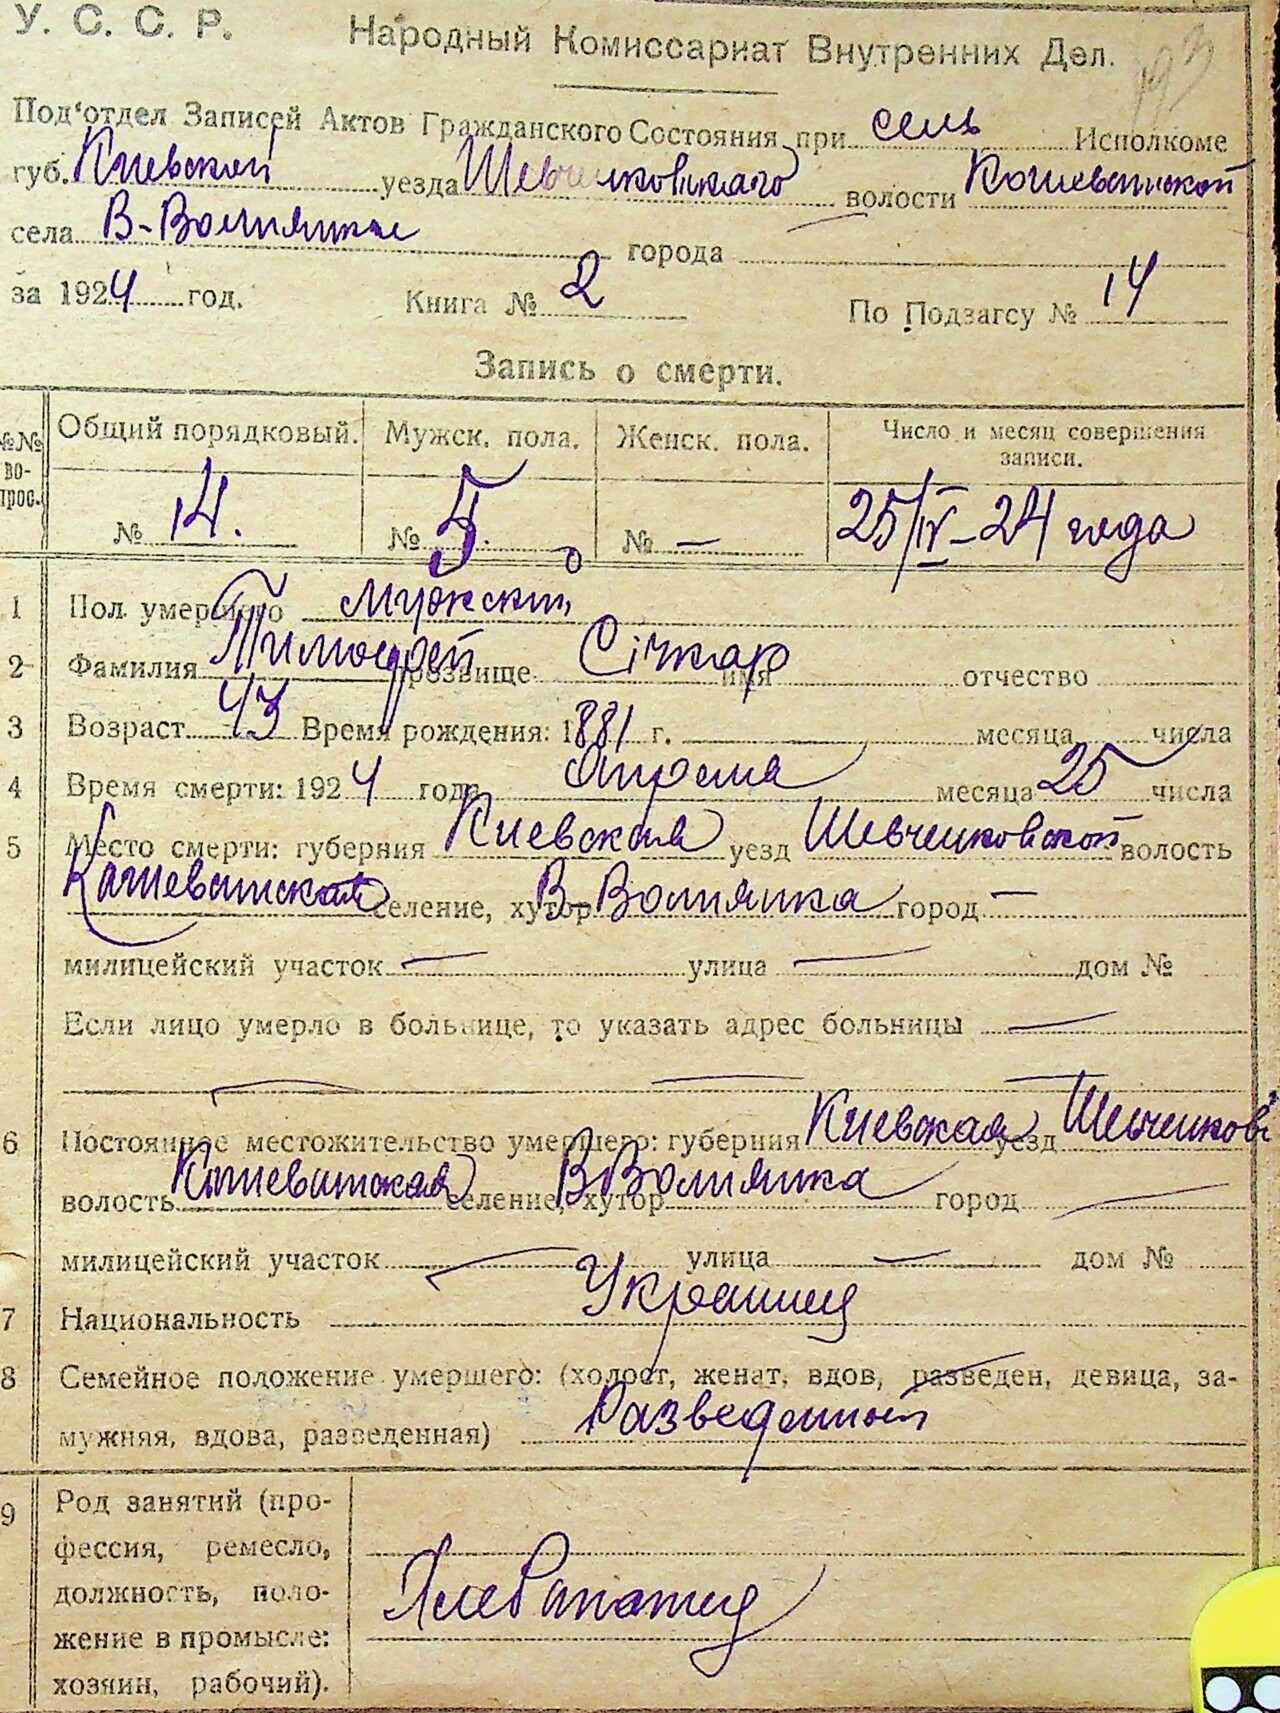 У. С. С. Р. Народный Комиссариат Внутренних Дел.
193
Под'отдел Записей Актов Гражданского Состояния при сель Исполкоме
губ. Киевской уезда Шевченковскаго волости Кошеватской
села В-Вотилитка города
за 1924 год. Книга № 2 По Подзагсу № 14
Запись о смерти.
№№ во-прос. Общий порядковый. Мужск. пола. Женск. пола. Число и месяц совершения записи.
№ 14. № 5. № — 25/IV-24 года
1 Пол умершего мужской
2 Фамилия Тимофей прозвище Січкар имя отчество
3 Возраст 43 Время рождения: 1881 г. месяца числа
4 Время смерти: 1924 года Апреля месяца 25 числа
5 Место смерти: губерния Киевская уезд Шевченковской волость
Кошеватская селение, хутор город —
милицейский участок — улица — дом №
Если лицо умерло в больнице, то указать адрес больницы —
6 Постоянное местожительство умершего: губерния Киевская уезд Шевченков
волость Кошеватская селение, хутор город —
милицейский участок — улица — дом №
7 Национальность Украинец
8 Семейное положение умершего: (холост, женат, вдов, разведен, девица, за-
мужняя, вдова, разведенная) Разведенной
9 Род занятий (про-
фессия, ремесло,
должность, поло-
жение в промысле:
хозяин, рабочий).